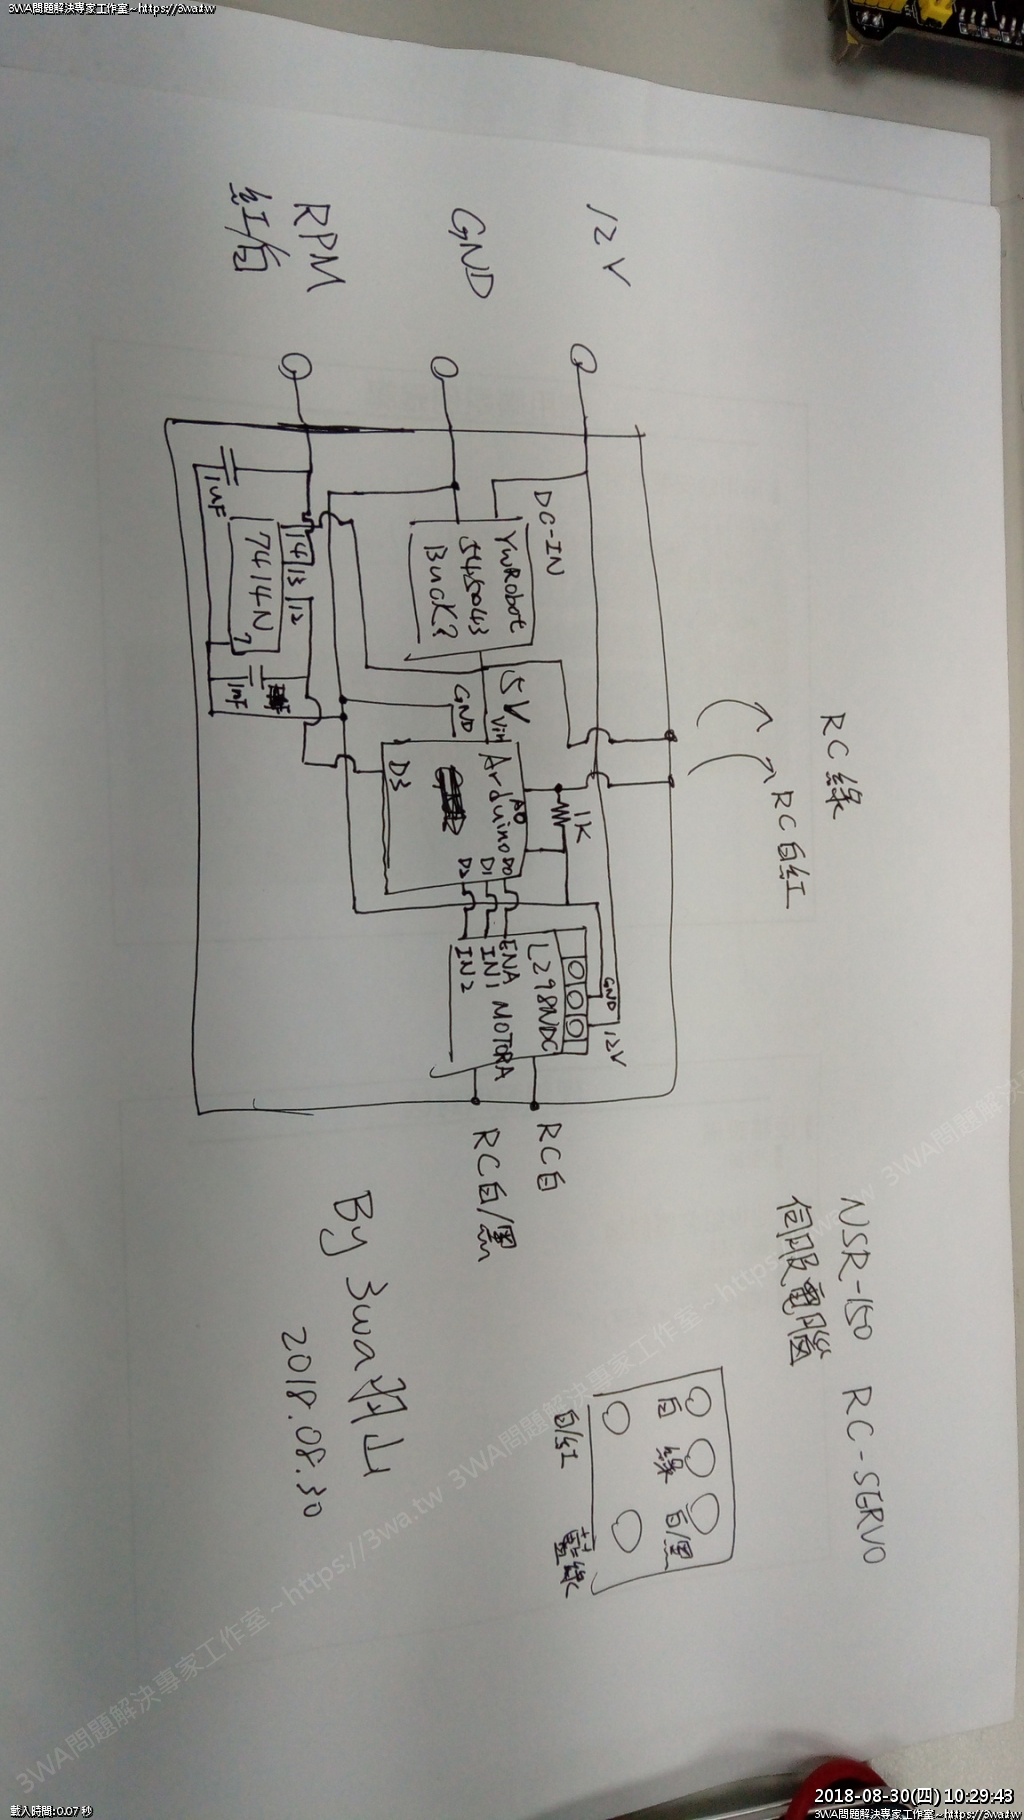 3WA問題解決專家工作室~https://3wa.tw
12V
GND
RPM
紅/白
RC綠
RC白紅
DC-IN
YwRobot
545043
Buck?
1uF
14 13 12
7414N
7
1nF
5V
GND
Vin
Arduino
A0
D3
D0
D1
D2
1K
ENA
IN1
IN2
L298NDC
MOTORA
GND
12V
RC白
RC白/黑
NSR-150 RC-SERVO
伺服電腦
白
綠
白/黑
白/紅
藍綠
By 3wa羽山
2018.08.30
3WA問題解決專家工作室~https://3wa.tw 3WA問題解決專家工作室~https://3wa.tw 3WA問題解決
載入時間:0.07 秒
2018-08-30(四) 10:29:43
3WA問題解決專家工作室~https://3wa.tw